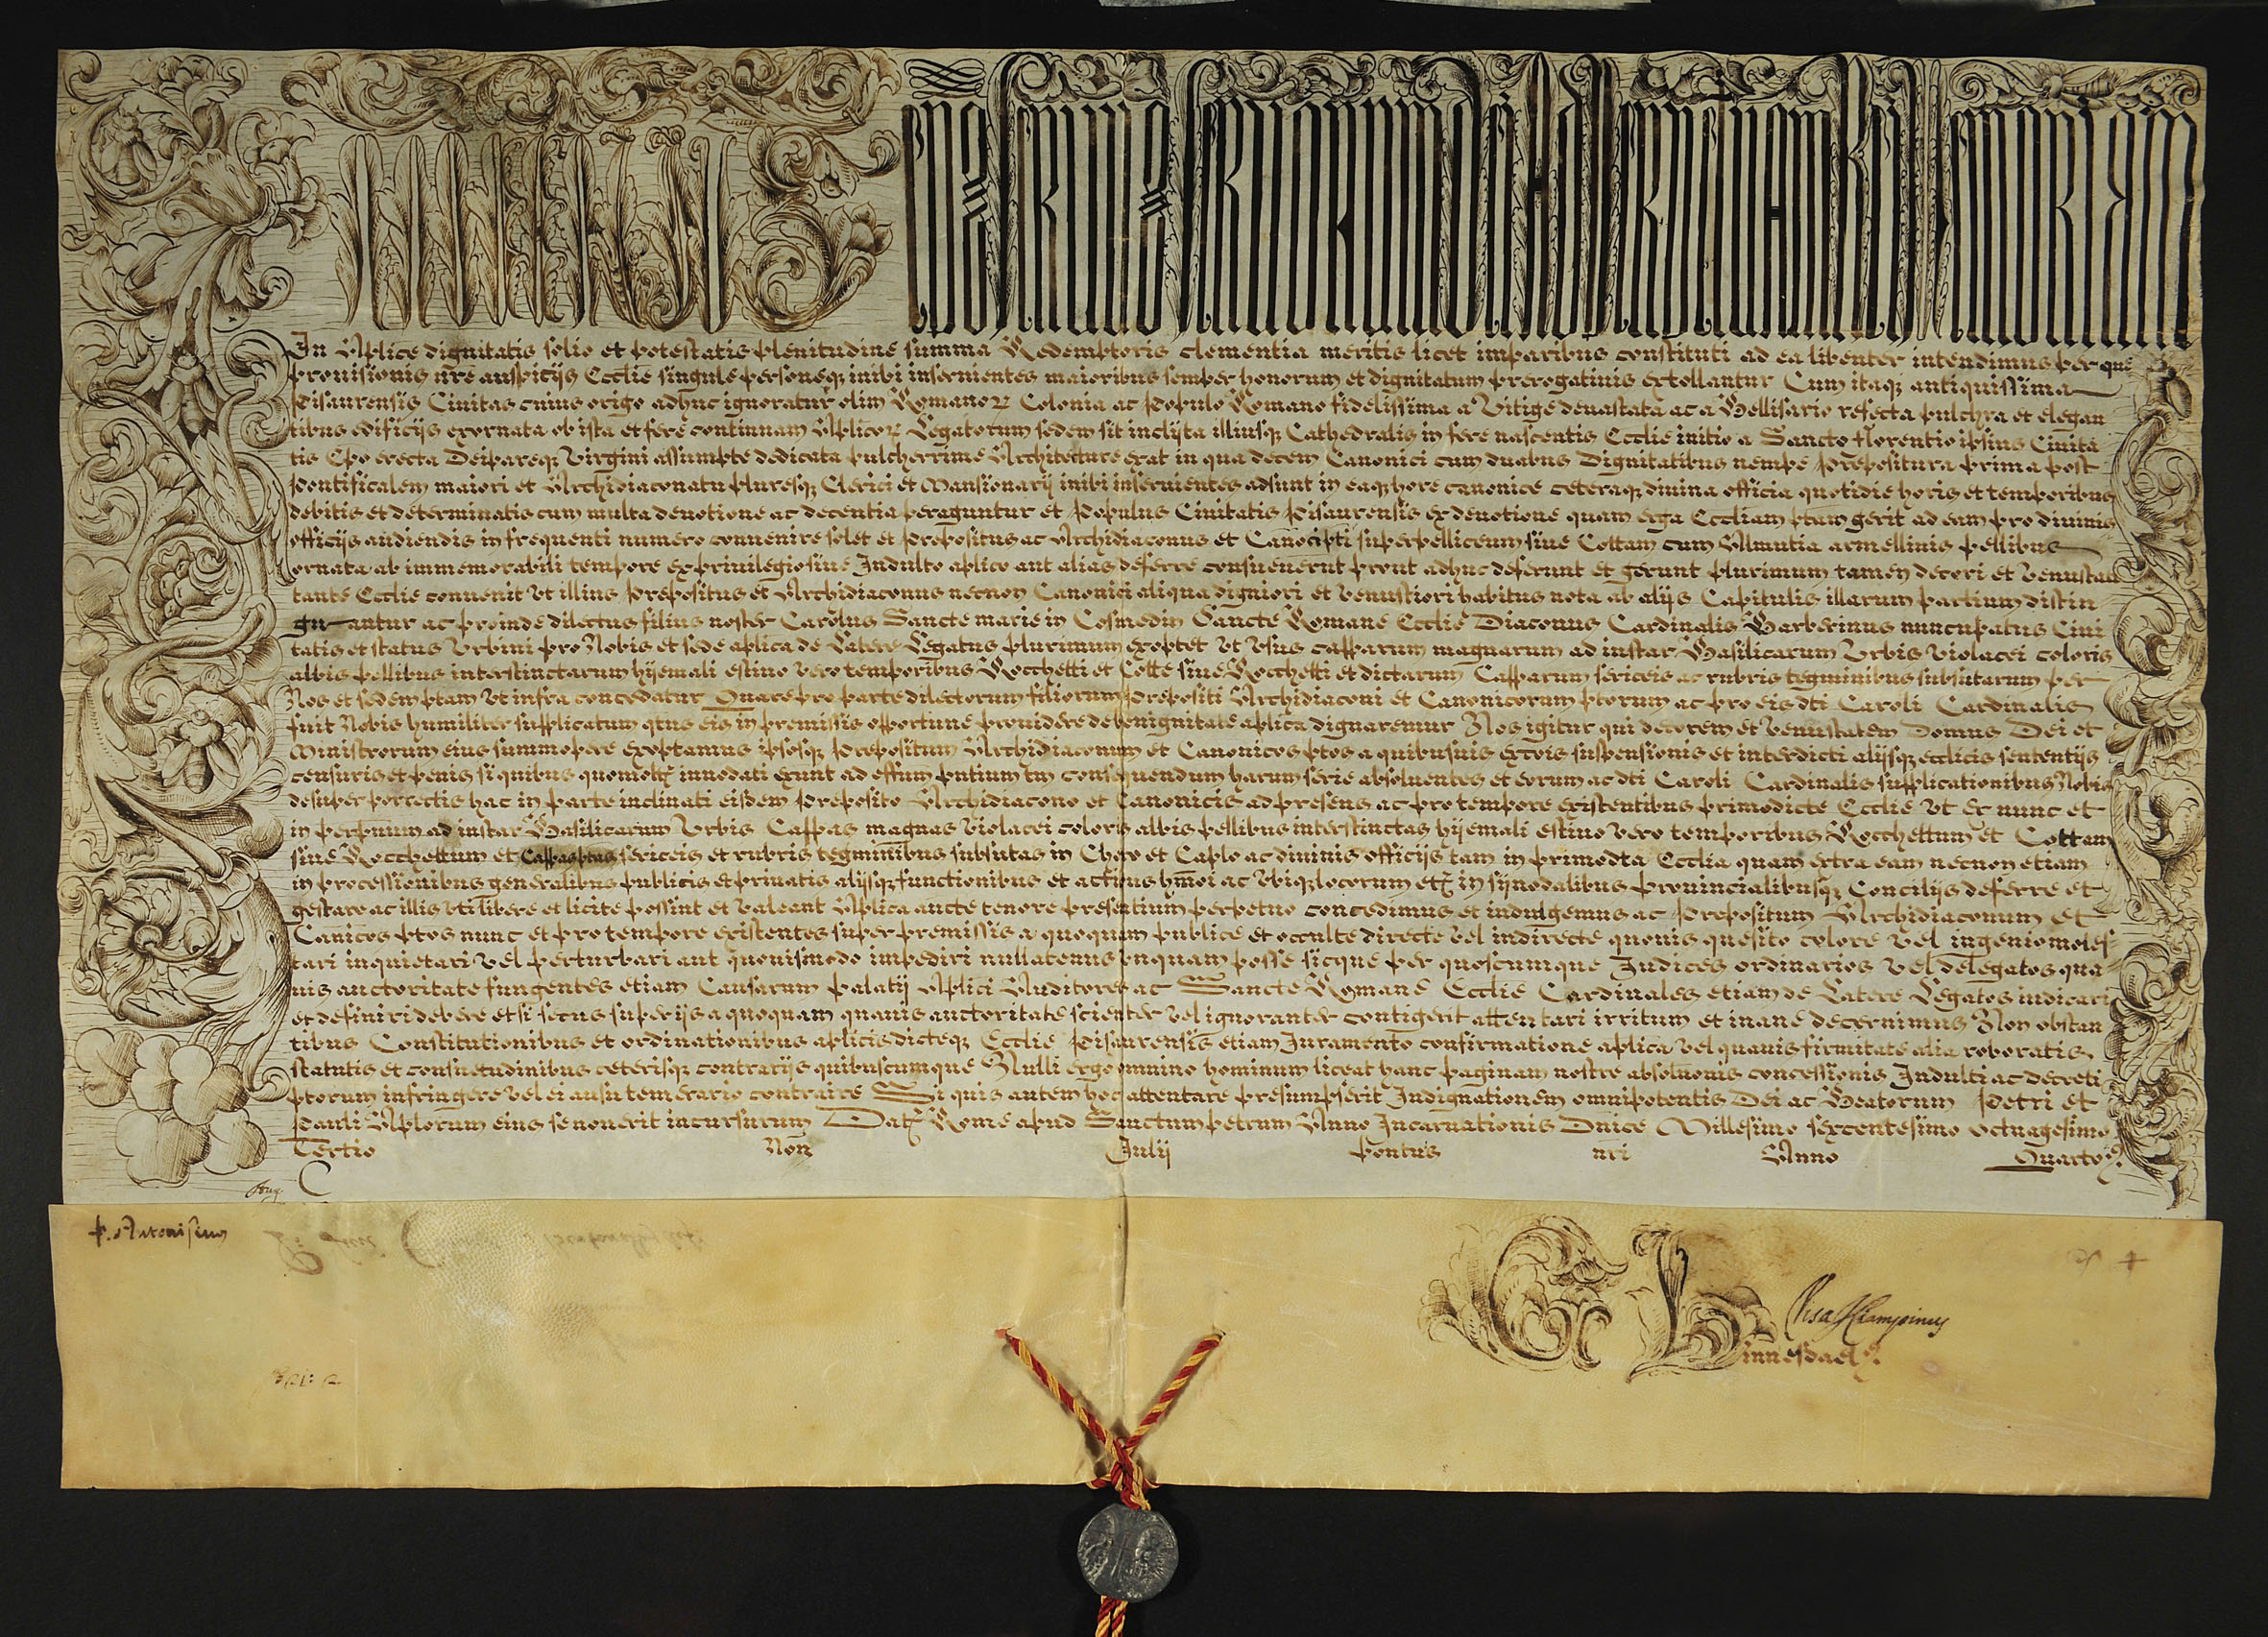 INNOCENTIUS eps servus servorum Dei Ad perpetuam Rei memoriam
In Aplice dignitatis solio et potestatis plenitudine summa Redemptoris clementia meritis licet imparibus constituti ad ea libenter intendimus per que
provisionis nre auspicijs Ecclie singule personeq; inibi inservientes maioribus semper honorum et dignitatum prerogativis extollantur Cum itaq; antiquissima
Pisaurensis Civitas cuius origo adhuc ignoratur olim Romanoꝝ Colonia ac Populo Romano fidelissima a Vitige devastata ac a Bellisario refecta pulchra et elegan
tibus edificijs exornata ob ista et fere continuam Aplicoꝝ Legatorum sedem sit inclyta illiusq; Cathedralis in fere nascentis Ecclie initio a Sancto florentio ipsius Civita
tis Epo erecta Deipareq; Virgini assumpte dedicata pulcherrime Architecture erat in qua decem Canonici cum duabus Dignitatibus nempe Prepositura prima post
Pontificalem maiori et Archidiaconatu pluresq; Clerici et Mansionarij inibi inservientes adsunt in eaq; hore canonice ceteraq; divina officia quotidie horis et temporibus
debitis et determinatis cum multa devotione ac decentia peraguntur et Populus Civitatis Pisaurensis ex devotione quam erga Eccliam ptam gerit ad eam pro divinis
officijs audiendis in frequenti numero convenire solet et Prepositus ac Archidiaconus et Canoci pti superpelliceum sive Cottam cum Almutia armellinis pellibus
ornata ab immemorabili tempore ex privilegio sive Indulto aplico aut alias deferre consueverunt prout adhuc deferunt et gerunt plurimum tamen decori et venustati
tante Ecclie convenit ut illius Prepositus et Archidiaconus necnon Canonici aliqua digniori et venustiori habitus nota ab alijs Capitulis illarum partium distin
guantur ac proinde dilectus filius noster Carolus Sancte marie in Cosmedin Sancte Romane Ecclie Diaconus Cardinalis Barberinus nuncupatus Civi
tatis et status Urbini pro Nobis et sede aplica de Latere Legatus plurimum exoptet ut usus capparum magnarum ad instar Basilicarum Urbis violacei coloris
albis pellibus interstinctarum hyemali estivo vero temporibus Rocchetti et Cotte sive Rocchetti et dictarum Capparum sericeis ac rubris tegminibus subsutarum per
Nos et sedem ptam ut infra concedatur Quare pro parte dilectorum filiorum Prepositi Archidiaconi et Canonicorum ptorum ac pro eis dti Caroli Cardinalis
fuit Nobis humiliter supplicatum qtus eis in premissis opportune providere de benignitate aplica dignaremur Nos igitur qui decorem et venustatem Domus Dei et
Ministrorum eius summopere exoptamus ipsosq; Prepositum Archidiaconum et Canonicos ptos a quibusvis excois suspensionis et interdicti alijsq; ecclicis sententijs
censuris et penis si quibus quomolt innodati exnt ad effum pntium tm consequendum harum serie absolventes et eorum ac dti Caroli Cardinalis supplicationibus Nobis
desuper porrectis hac in parte inclinati eisdem Preposito Archidiacono et Canonicis ad presens ac pro tempore existentibus primodicte Ecclie ut ex nunc et
in perpuum ad instar Basilicarum Urbis Cappas magnas violacei coloris albis pellibus interstinctas hyemali estivo vero temporibus Rocchettum et Cottam
sive Rocchettum et Cappas ptas sericeis et rubris tegminibus subsutas in Choro et Caplo ac divinis officijs tam in primodta Ecclia quam extra eam necnon etiam
in processionibus generalibus publicis et privatis alijsq; functionibus et actibus hmoi ac ubiq; locorum et in synodalibus provincialibusq; Concilijs deferre et
gestare ac illis uti libere et licite possint et valeant Aplica aucte tenore presentium perpetuo concedimus et indulgemus ac Prepositum Archidiaconum et
Canicos ptos nunc et pro tempore existentes super premissis a quoquam publice et occulte directe vel indirecte quovis quesito colore vel ingenio moles
tari inquietari vel perturbari aut quovismodo impediri nullatenus unquam posse sicque per quoscumque Iudices ordinarios vel delegatos qua
vis auctoritate fungentes etiam Causarum Palatij Aplici Auditores ac Sancte Romane Ecclie Cardinales etiam de Latere Legatos iudicari
et definiri debere et si secus super ijs a quoquam quavis auctoritate scienter vel ignoranter contigerit attentari irritum et inane decernimus Non obstan
tibus Constitutionibus et ordinationibus aplicis dicteq; Ecclie Pisaurensis etiam Iuramento confirmatione aplica vel quavis firmitate alia roboratis
statutis et consuetudinibus ceterisq; contrarijs quibuscumque Nulli ergo omnino hominum liceat hanc paginam nostre absolutionis concessionis Indulti ac decreti
ptorum infringere vel ei ausu temerario contraire Si quis autem hoc attentare presumpserit Indignationem omnipotentis Dei ac Beatorum Petri et
Pauli Aplorum eius se noverit incursurum Dat Rome apud Sanctum petrum Anno Incarnationis Dnice Millesimo sexcentesimo octuagesimo
Tertio Non Iulij Pontus nri Anno Quarto
P. Antoniseus
Visa Ciampinus
Binnesdael